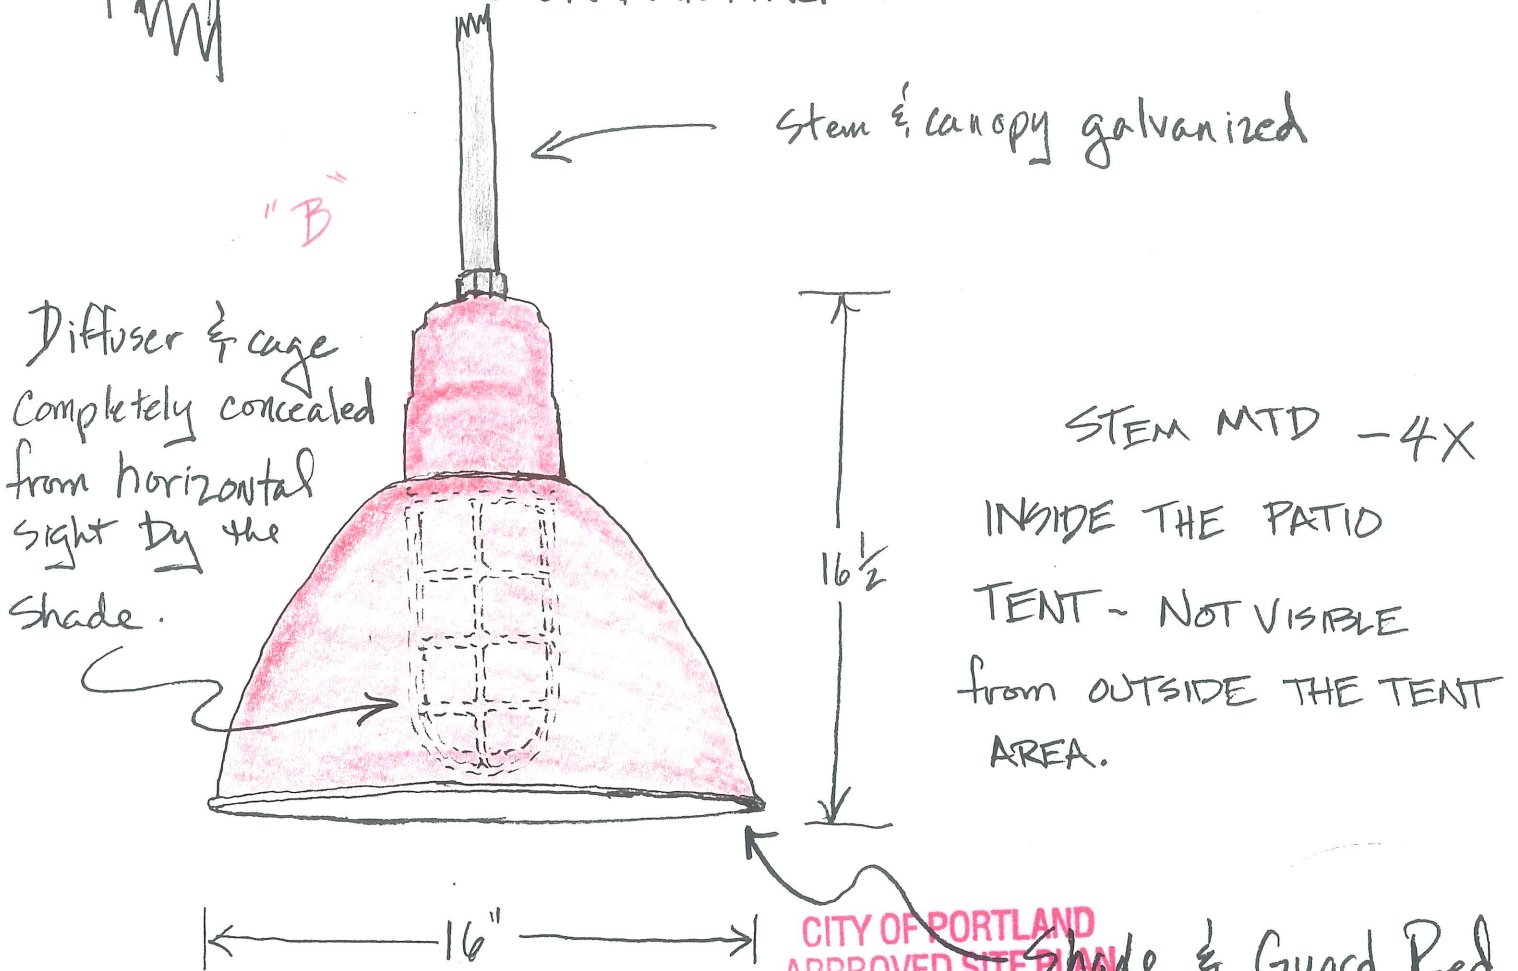 Stem & canopy galvanized
"B"
Diffuser & cage
completely concealed
from horizontal
sight by the
shade.
16 1/2
STEM MTD - 4X
INSIDE THE PATIO
TENT - NOT VISIBLE
from OUTSIDE THE TENT
AREA.
16"
CITY OF PORTLAND
APPROVED SITE PLAN
Shade & Guard Red